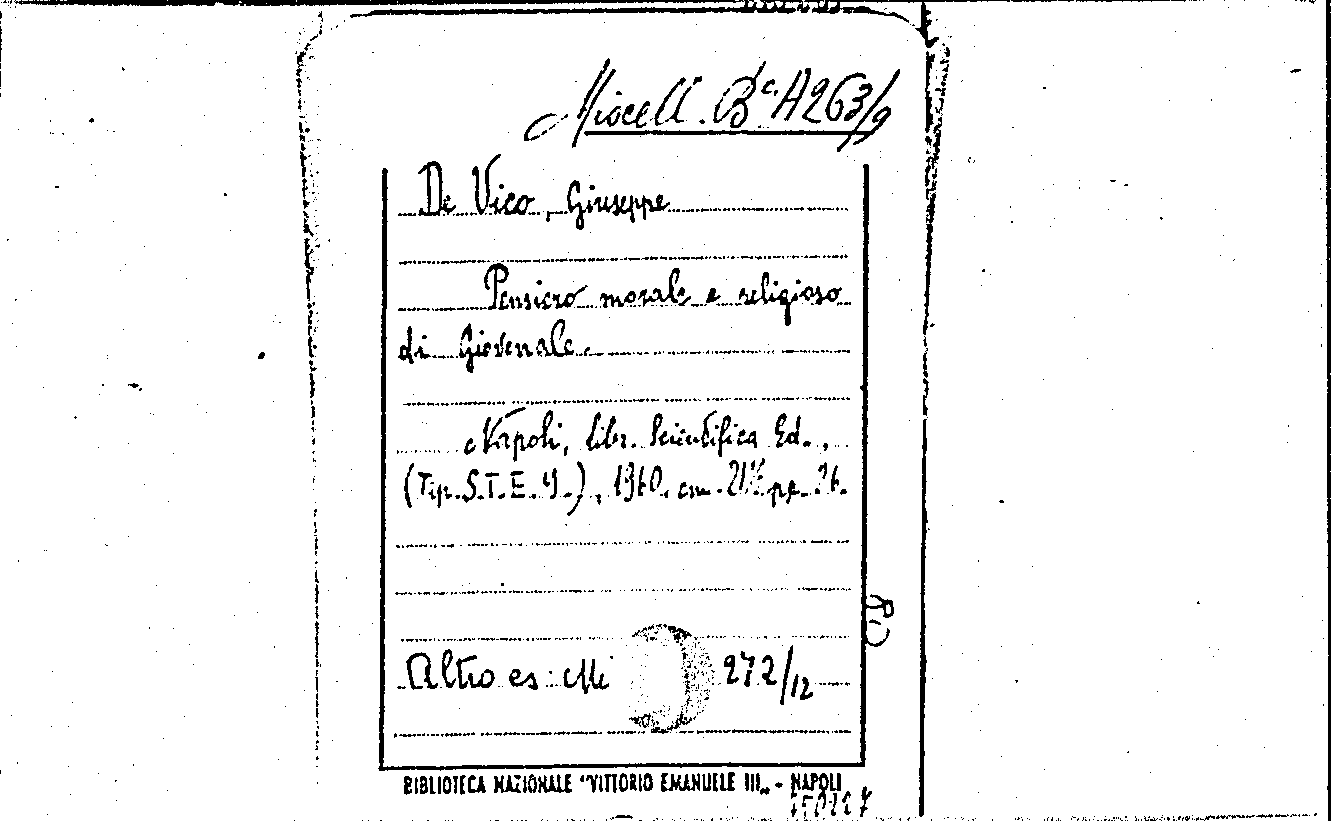 Miscell. Bᶜ. A263/9
De Vico, Giuseppe
Pensiero morale e religioso
di Giovenale.
Napoli, Libr. Scientifica Ed.,
(Tip. S.T.E.U.), 1960. cm. 21½ pp. 26.
Altro es: Mi 272/12
BIBLIOTECA NAZIONALE "VITTORIO EMANUELE III„ - NAPOLI